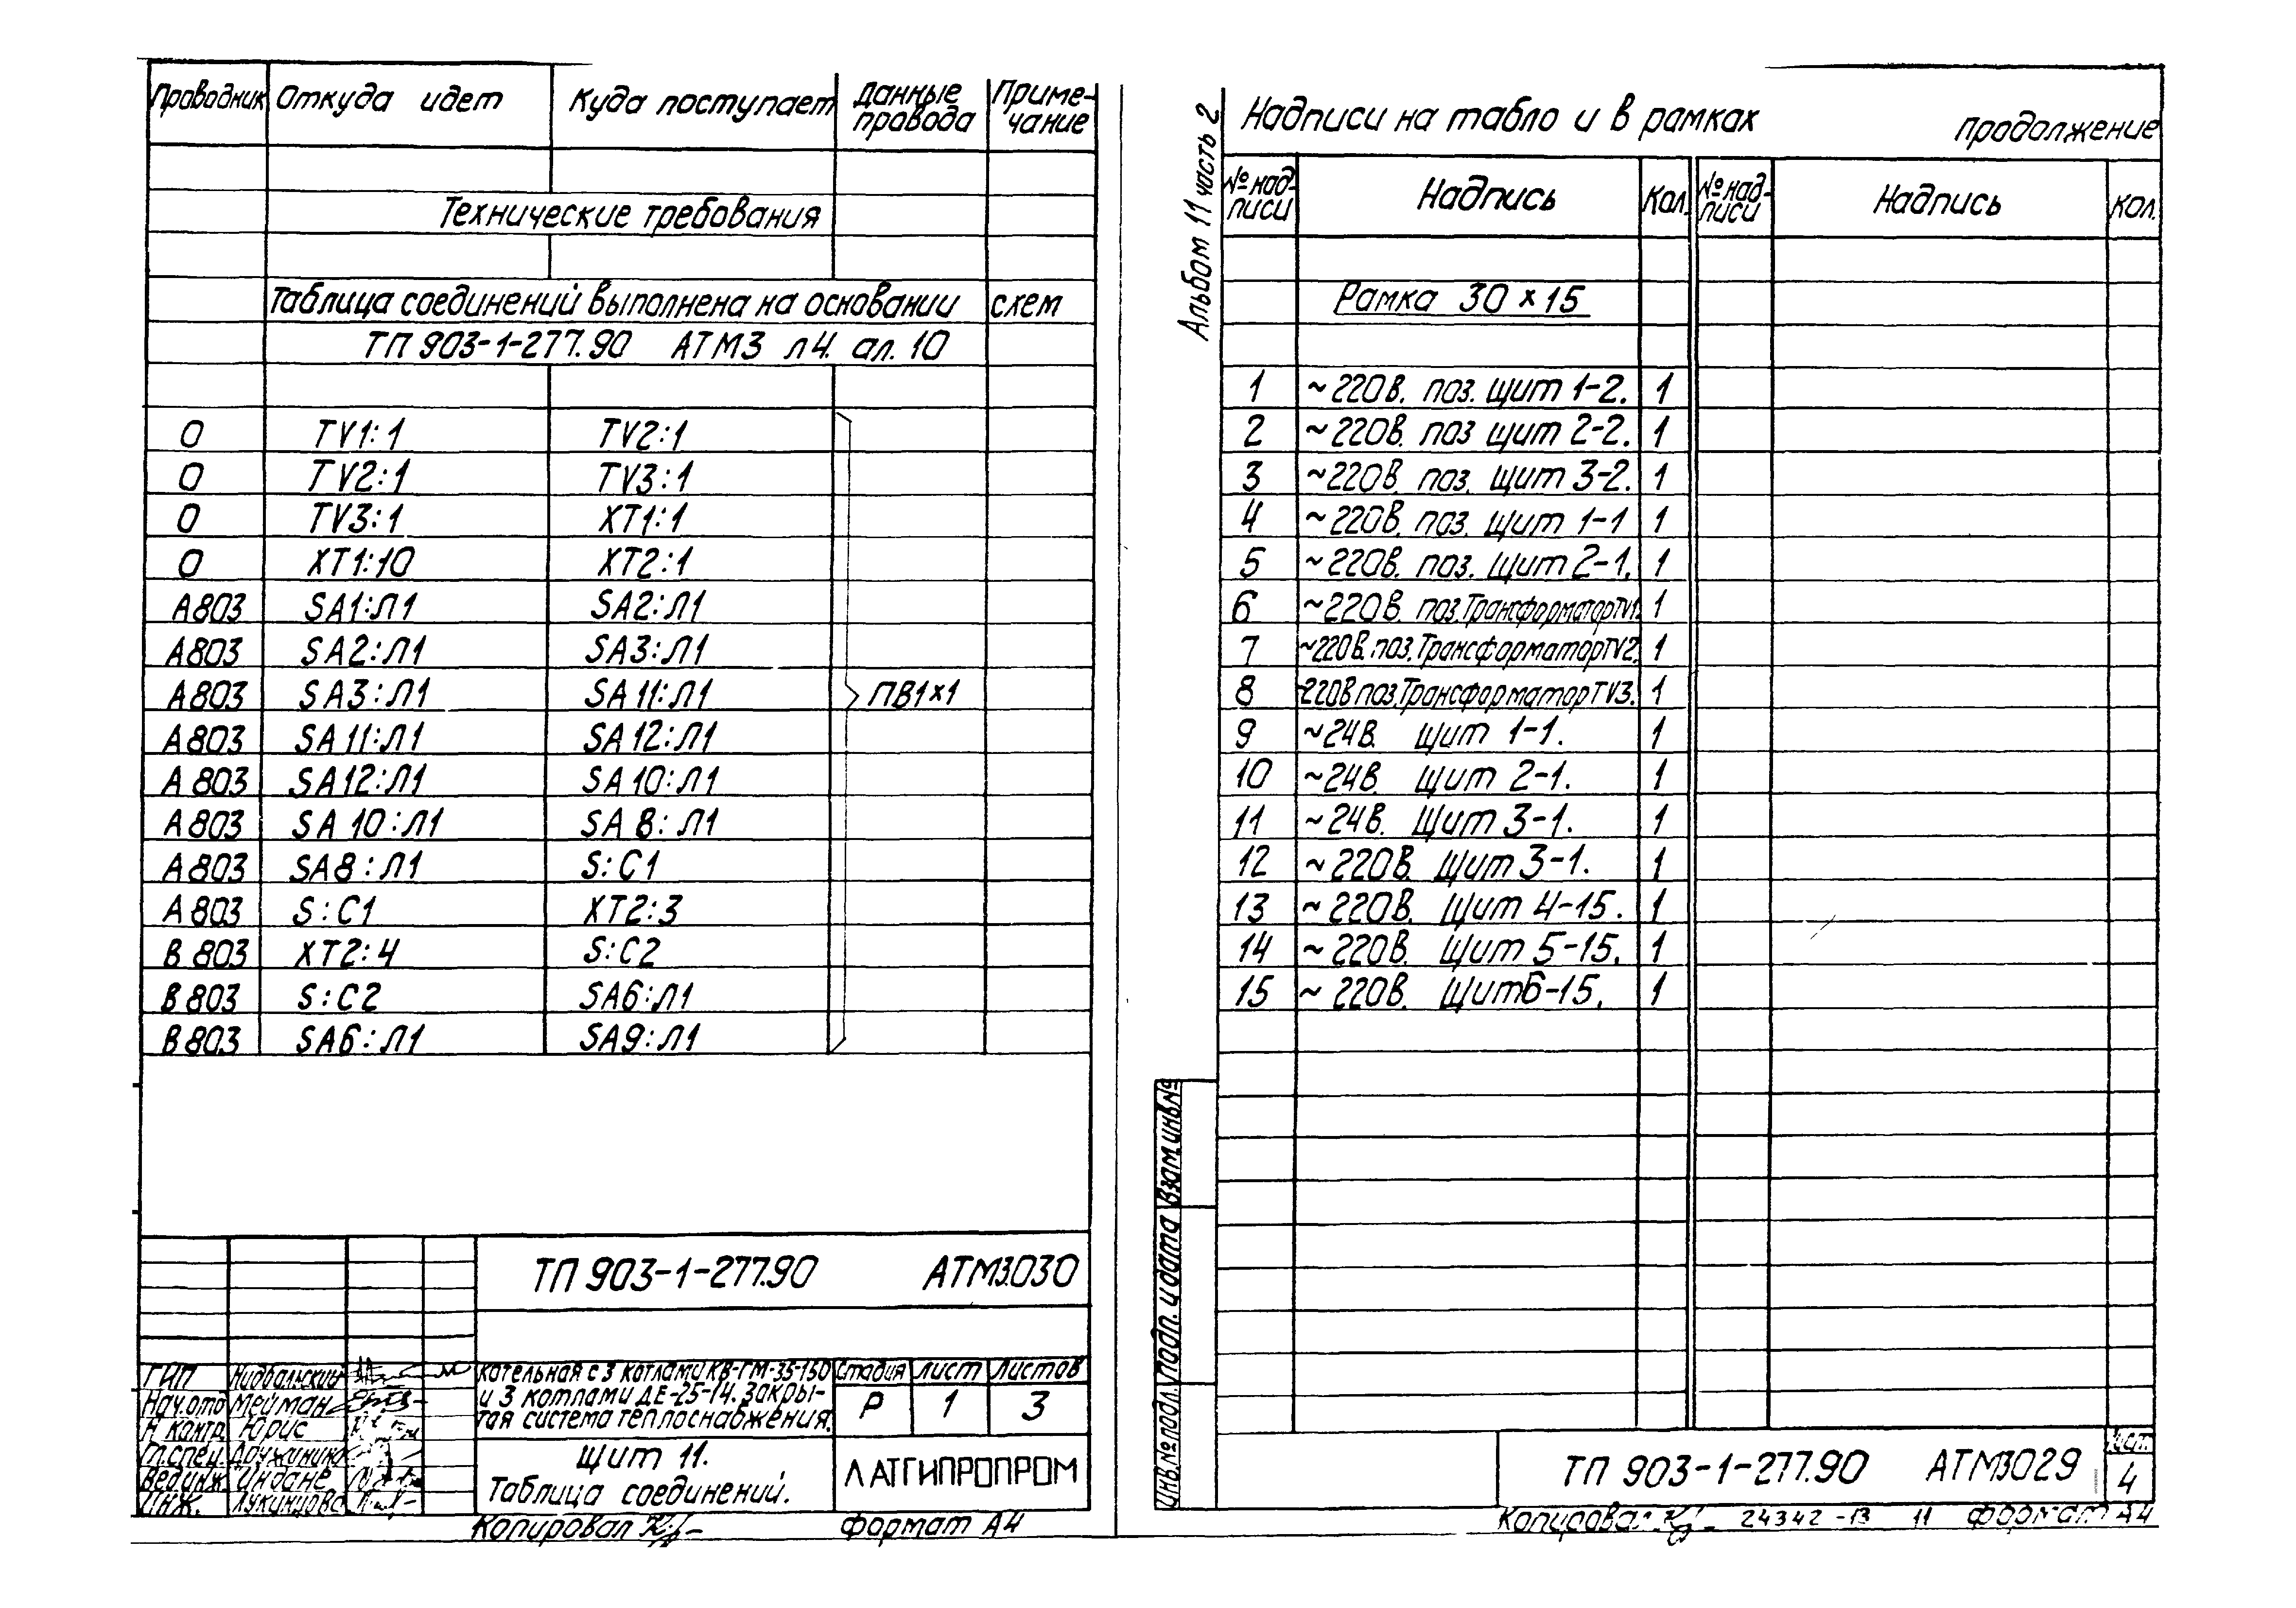 Проводник Откуда идет Куда поступает Данные провода Приме-чание
Технические требования
Таблица соединений выполнена на основании схем
ТП 903-1-277.90 АТМ3 л4. ал. 10
0 TV1:1 TV2:1
0 TV2:1 TV3:1
0 TV3:1 XT1:1
0 XT1:10 XT2:1
А803 SA1:Л1 SA2:Л1
А803 SA2:Л1 SA3:Л1
А803 SA3:Л1 SA11:Л1 ПВ1х1
А803 SA11:Л1 SA12:Л1
А803 SA12:Л1 SA10:Л1
А803 SA10:Л1 SA8:Л1
А803 SA8:Л1 S:C1
А803 S:C1 XT2:3
В803 XT2:4 S:C2
В803 S:C2 SA6:Л1
В803 SA6:Л1 SA9:Л1
ТП 903-1-277.90 АТМ3.030
ГИП
Нач.отд Мейман
Н контр. Юрис
Гл.спец.
Вед.инж. Индане
Инж.
Котельная с 3 котлами КВ-ГМ-35-150
и 3 котлами ДЕ-25-14. Закры-
тая система теплоснабжения.
Стадия Лист Листов
Р 1 3
Щит 11.
Таблица соединений.
ЛАТГИПРОПРОМ
Копировал
Формат А4
Альбом 11 часть 2
Надписи на табло и в рамках
Продолжение
№ над-писи Надпись Кол. № над-писи Надпись Кол.
Рамка 30×15
1 ~220В. поз. щит 1-2. 1
2 ~220В. поз щит 2-2. 1
3 ~220В. поз. щит 3-2. 1
4 ~220В. поз. щит 1-1 1
5 ~220В. поз. щит 2-1. 1
6 ~220В. поз. Трансформатор TV1. 1
7 ~220В. поз. Трансформатор TV2. 1
8 ~220В поз. Трансформатор TV3. 1
9 ~24В. щит 1-1. 1
10 ~24В. щит 2-1. 1
11 ~24В. Щит 3-1. 1
12 ~220В. Щит 3-1. 1
13 ~220В. Щит 4-15. 1
14 ~220В. Щит 5-15. 1
15 ~220В. Щит 6-15. 1
Инв.№ подл. Подп. и дата Взам.инв.№
ТП 903-1-277.90 АТМ3029
Лист
4
Копировал
24342-13 11
Формат А4